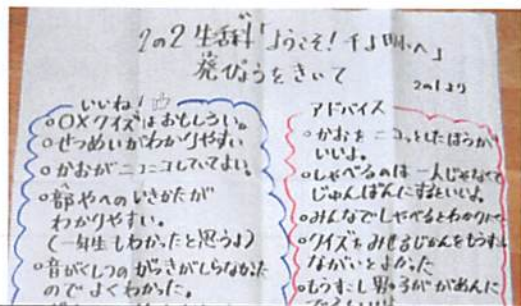 2の2 生活科「ようこそ!千明小へ」
発ぴょうをきいて
2の1より
いいね!
○○×クイズはおもしろい。
○せつめいがわかりやすい
○かおがニコニコしていてよい。
○部やへのいきかたが
わかりやすい。
(一年生もわかったと思うよ)
○音がくしつのがっきがしらなかった
のでよくわかった。
アドバイス
○かおをニコッとしたほうが
いいよ。
○しゃべるのは一人じゃなくて
じゅんばんにするといいよ。
○みんなでしゃべるとわかりにくい
○クイズをみせるじかんをもうすこし
ながいとよかった
○もうすこし男の子ががめんに